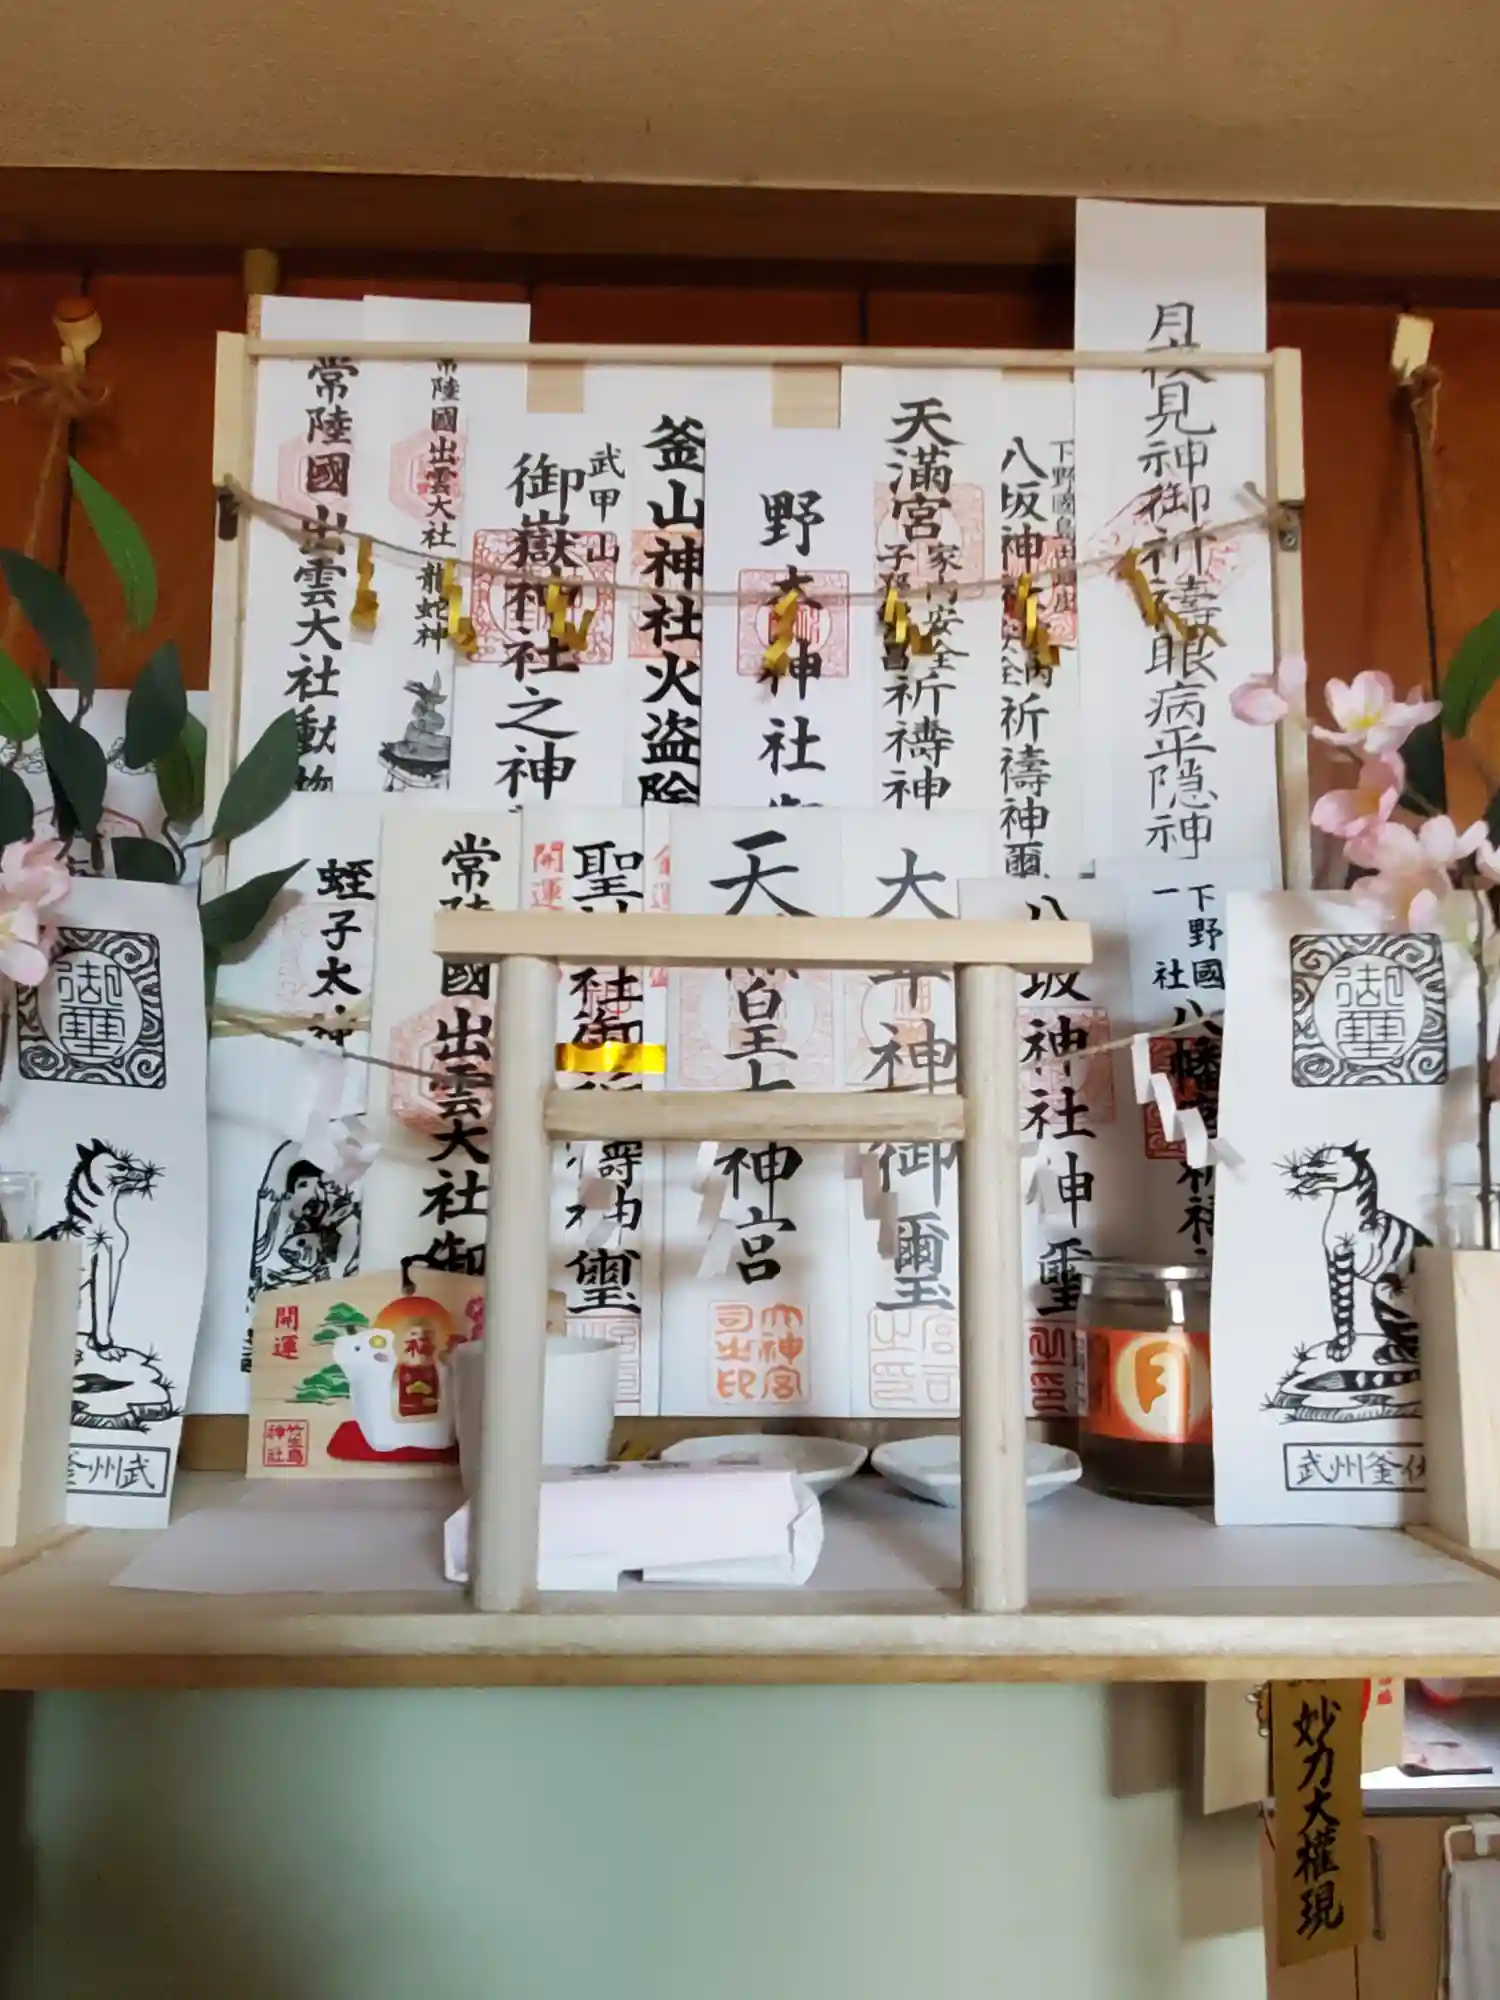 常陸國出雲大社動物
常陸國出雲大社龍蛇神
武甲山
御嶽神社之神
釜山神社火盗除
野木神社
天満宮
家内安全
子孫繁昌
祈禱神
八坂神社
祈禱神爾
月夜見神御祈禱眼病平隠神
蛭子太神
常陸國出雲大社御
開運
聖神社御祈禱神璽
天照皇大神宮
大神宮司之印
大平神御璽
宮司之印
八坂神社神璽
下野國
一社
八幡宮祈禱
御璽
武州釜
御璽
武州釜伏
開運
福
竹生島神社
月
妙力大権現